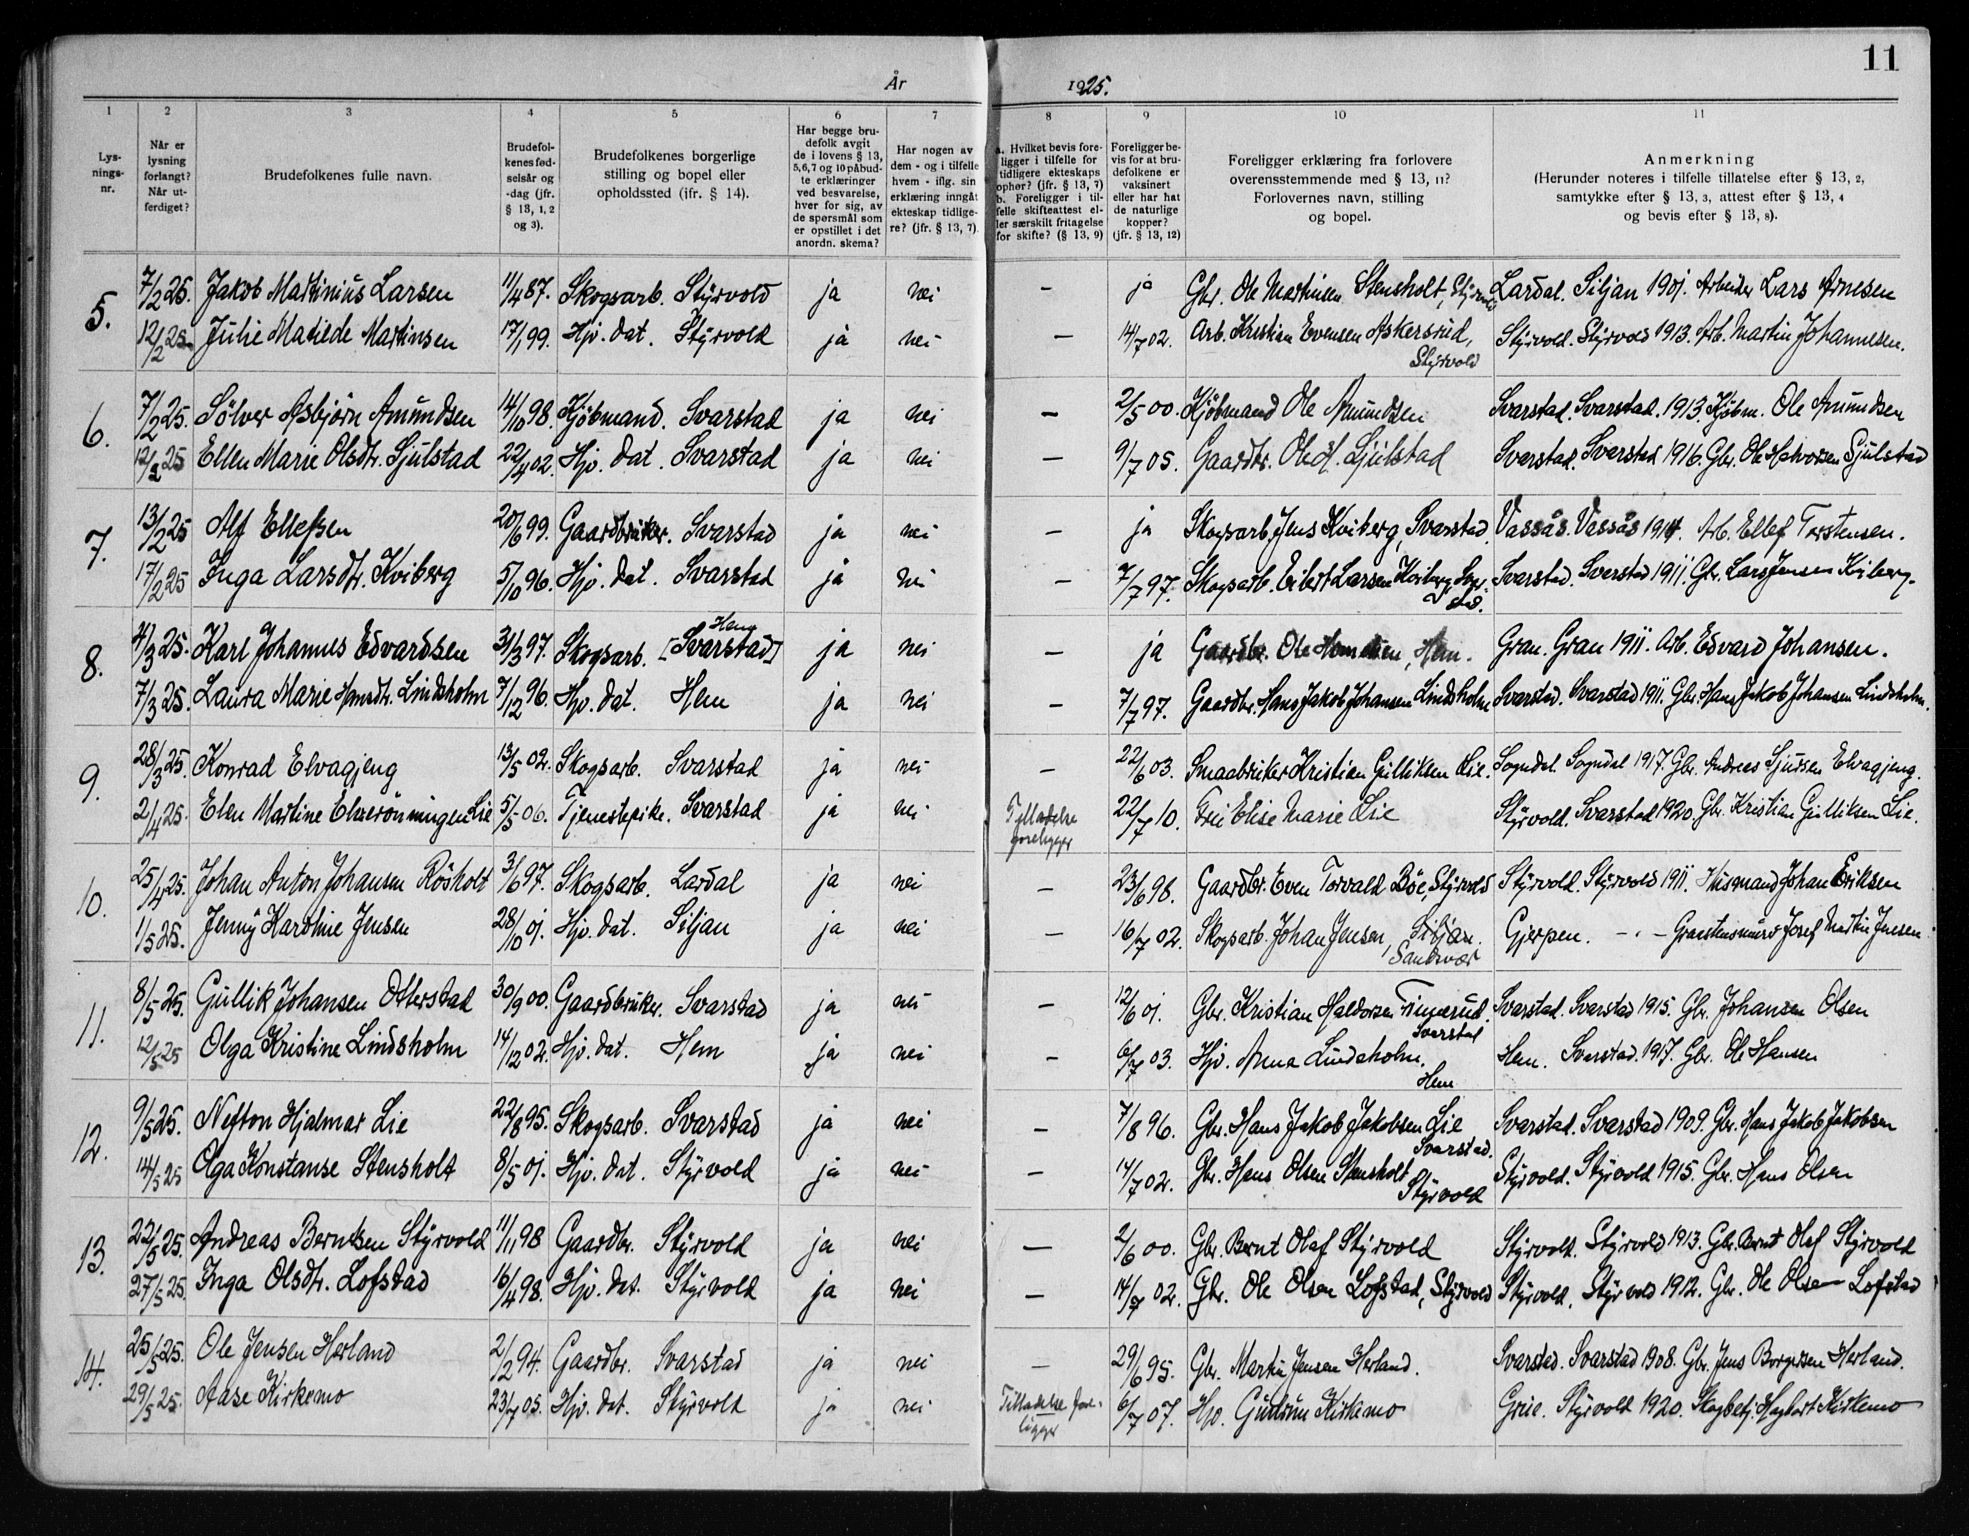 11
År 1925.
1 2 3 4 5 6 7 8 9 10 11
Lysningsnr.
Når er lysning forlangt? Når utferdiget?
Brudefolkenes fulle navn.
Brudefolkenes fødselsår og -dag (jfr. § 13, 1, 2 og 3).
Brudefolkenes borgerlige stilling og bopel eller opholdssted (ifr. § 14).
Har begge brudefolk avgit de i lovens § 13, 5,6,7 og 10 påbudte erklæringer ved besvarelse, hver for sig, av de spørsmål som er opstillet i det anordn. skema?
Har nogen av dem - og i tilfelle hvem - iflg. sin erklæring inngåt ekteskap tidligere? (jfr. § 13, 7).
a. Hvilket bevis foreligger i tilfelle for tidligere ekteskaps ophør? (jfr. § 13, 7) b. Foreligger i tilfelle skifteattest eller særskilt fritagelse for skifte? (§ 13, 9)
Foreligger bevis for at brudefolkene er vaksinert eller har hat de naturlige kopper? (jfr. § 13, 12)
Foreligger erklæring fra forlovere overensstemmende med § 13, 11? Forlovernes navn, stilling og bopel.
Anmerkning (Herunder noteres i tilfelle tillatelse efter § 13, 2, samtykke efter § 13, 3, attest efter § 13, 4 og bevis efter § 13, 8).
5. 7/2 25. Jakob Martinius Larsen 11/4 87. Skogsarb. Styrvold ja nei - ja Gbr. Ole Martinsen Stensholt, Styrvold Lardal. Siljan 1901. Arbeider Lars Arnesen
12/2 25. Julie Matilde Martinsen 17/1 99. Hjv. dat. Styrvold ja nei - 14/7 02. Arb. Kristian Evensen Askersrud, Styrvold Styrvold. Styrvold 1913. Arb. Martin Johannesen.
6. 7/2 25. Sölver Asbjörn Amundsen 14/10 98. Kjöbmand. Svarstad ja nei - 2/5 00. Kjöbmand Ole Amundsen Svarstad. Svarstad. 1913. Kjöbm. Ole Amundsen
12/2 25 Ellen Marie Olsdtr. Sjulstad 22/4 02. Hjv. dat. Svarstad ja nei - 9/7 05. Gaardbr. Ole H. Sjulstad Svarstad. Svarstad 1916. Gbr. Ole Halvorsen Sjulstad
7. 13/2 25 Alf Ellefsen 20/6 99. Gaardbruker. Svarstad ja nei - ja Skogsarb. Jens Kviberg, Svarstad. Vassås. Vassås 1914. Arb. Ellef Torstensen.
17/2 25 Inga Larsdtr. Kviberg 5/10 96. Hjv. dat. Svarstad ja nei - 7/7 97. Skogsarb. Eibert Larsen Kviberg, Svarstad. Svarstad Svarstad 1911. Gbr. Lars Jensen Kviberg.
8. 4/3 25. Karl Johannes Edvardsen 31/3 97. Skogsarb. [Svarstad] Hem ja nei - ja Gaardbr. Ole, Hem. Gran. Gran 1911. Arb. Edvard Johansen.
7/3 25. Laura Marie Hansdtr. Lindsholm 7/12 96. Hjv. dat. Hem ja nei - 7/7 97. Gaardbr. Hans Jakob Johansen Lindsholm Svarstad. Svarstad 1911. Gbr. Hans Jakob Johansen Lindsholm.
9. 28/3 25. Konrad Elvagjeng 13/5 02. Skogsarb. Svarstad ja nei - 22/6 03. Smaabruker Kristian Gulliksen Lie. Sogndal. Sogndal 1917. Gbr. Andreas Sjursen Elvagjeng.
2/4 25. Elen Martine Elverönningen Lie 5/5 06. Tjenestepike. Svarstad ja nei Tilladelse foreligger 22/7 10. Fru Elise Marie Lie Styrvold. Svarstad 1920. Gbr. Kristian Gulliksen Lie.
10. 25/4 25. Johan Anton Johansen Rösholt 3/6 97. Skogsarb. Lardal ja nei - 23/6 98. Gaardbr. Even Torvald Böe, Styrvold Styrvold. Styrvold 1911. Husmand Johan Eriksen
1/5 25. Jenny Karoline Jensen 28/10 01. Hjv. dat. Siljan ja nei - 16/7 02. Skogsarb. Johan Jensen, Siljan. Sandsvær Gjerpen. - - Graastensmurer Josef Martin Jensen
11. 8/5 25. Gullik Johansen Otterstad 30/9 00. Gaardbruker. Svarstad ja nei - 12/6 01. Gbr. Kristian Haldorsen Finnerud. Svarstad Svarstad. Svarstad 1915. Gbr. Johansen Olsen
12/5 25 Olga Kristine Lindsholm 14/12 02. Hjv. dat. Hem ja nei - 6/7 03. Hjv. Anna Lindsholm. Hem Hem. Svarstad. 1917. Gbr. Ole Hansen
12. 9/5 25. Nefton Hjalmar Lie 22/8 95. Skogsarb. Svarstad ja nei - 7/8 96. Gbr. Hans Jakob Jakobsen Lie Svarstad. Svarstad. Svarstad 1909. Gbr. Hans Jakob Jakobsen
14/5 25 Olga Konstanse Stensholt 8/5 01. Hjv. dat. Styrvold ja nei - 14/7 02. Gbr. Hans Olsen Stensholt Styrvold Styrvold. Styrvold 1915. Gbr. Hans Olsen
13. 22/5 25. Andreas Berntsen Styrvold 11/11 98 Gaardbr. Styrvold ja nei - 2/6 00. Gbr. Bernt Olaf Styrvold Styrvold. Styrvold 1913. Gbr. Bernt Olaf Styrvold
27/5 25. Inga Olsdtr. Lofstad 16/4 98. Hjv. dat. Styrvold ja nei - 14/7 02. Gbr. Ole Olsen Lofstad, Styrvold Styrvold. Styrvold 1912. Gbr. Ole Olsen Lofstad
14. 25/5 25. Ole Jensen Herland 2/2 94. Gaardbr. Svarstad ja nei - 29/6 95. Gbr. Martin Jensen Herland. Svarstad. Svarstad 1908. Gbr. Jens Borgersen Herland.
29/5 25. Aase Kirkemo 23/7 05. Hjv. dat. Styrvold ja nei Tilladelse foreligger 6/7 07. Hjv. Gudrun Kirkemo Grue. Styrvold 1920. Skogbetj. Hagbart Kirkemo